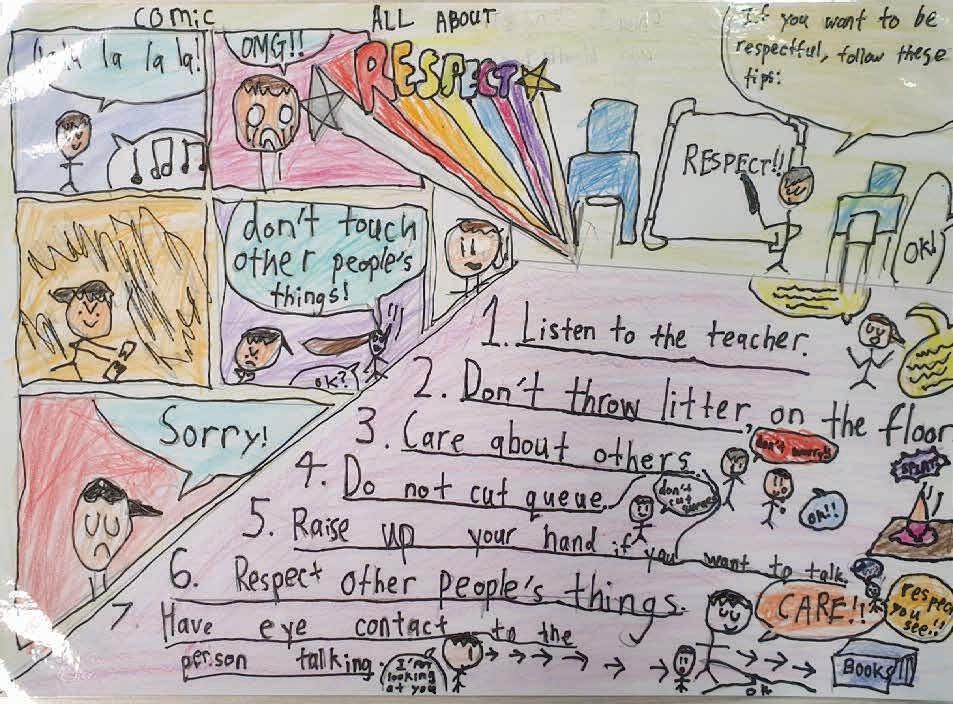 comic
ALL ABOUT
RESPECT
la la la!
OMG!!
don't touch
other people's
things!
OK?
Sorry!
If you want to be
respectful, follow these
tips:
RESPECT!!
OK!
1. Listen to the teacher.
2. Don't throw litter, on the floor
3. Care about others
4. Do not cut queue
don't
cut
5. Raise up your hand if you want to talk
6. Respect other people's things.
7. Have eye contact to the
person talking.
I'm
looking
at you
SPLAT
CARE!!
respect
you
see..!!
BOOKS!!
OK